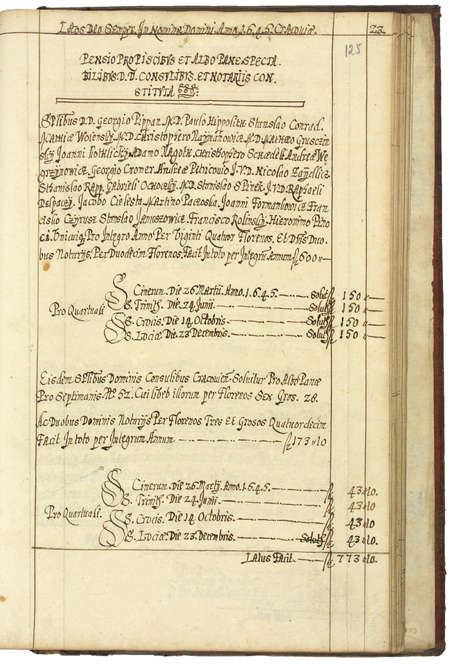 Laus Deo Semper. In Nomine Domini Anno 1.6.4.5. Cracoviæ. 23
125
Pensio Propiscibvs et Albo Pane, Specta
bilibvs D.D. Consvlibvs. et Notariis Con
stitvta
Splibus D.D. Georgio Pippan M.D. Paulo Hippolith Stanslao Conrad.
Woiensky M.D. Christophero Naÿmanowicz M.D. Matthæo Grusczin
sky Joanni Adamo Christophero Schædel Andreæ We
grzynowicz Georgio Croner Andreæ Petricouio I.V.D. Nicolao
Stanislao Gabrieli Ochocky M.D. Stanislao I.V.D. Raphaeli
Delpacy. Jacobo Cielesta Martino Paczoska Joanni Formankowicz Fran
cisco Cÿrus Stanslao Januszowicz Francisco Rolinsky Hieronimo Pino
ci. Unicuiq Pro Integro Anno Per Viginti Quatuor Florenos. Et Dnis Duo
bus Notarÿs, Per Duodecim Florenos, Facit In toto per Integrum Annum f 600
Cinerum. Die 26 Martii. Anno. 1.6.4.5. Solut f 150
S. Trinitt. Die 24 Junii Solut f 150
Pro Quartuali
S. Crucis. Die 14 Octobris Solut f 150
S. Luciæ. Die 23 Decembris Solut f 150
Eisdem Splibus Dominis Consulibus Cracouien Soluitur Pro Albo Pane
Pro Septimanis No 52. Cuilibet illorum per Florenos Sex Gros. 28.
Ac Duobus Dominis Notarÿs Per Florenos Tres Et Grosos Quatuordecim
Facit In toto per Integrum Annum f 173 10
Cinerum. Die 26 Martÿ. Anno. 1.6.4.5. f 43 10.
S. Trinitt. Die 24 Junii f 43 10
Pro Quartuali.
S. Crucis. Die 14 Octobris. f 43 10
S. Luciæ. Die 23 Decembris. Solut f 43 10.
Latus Facit f 773 10.